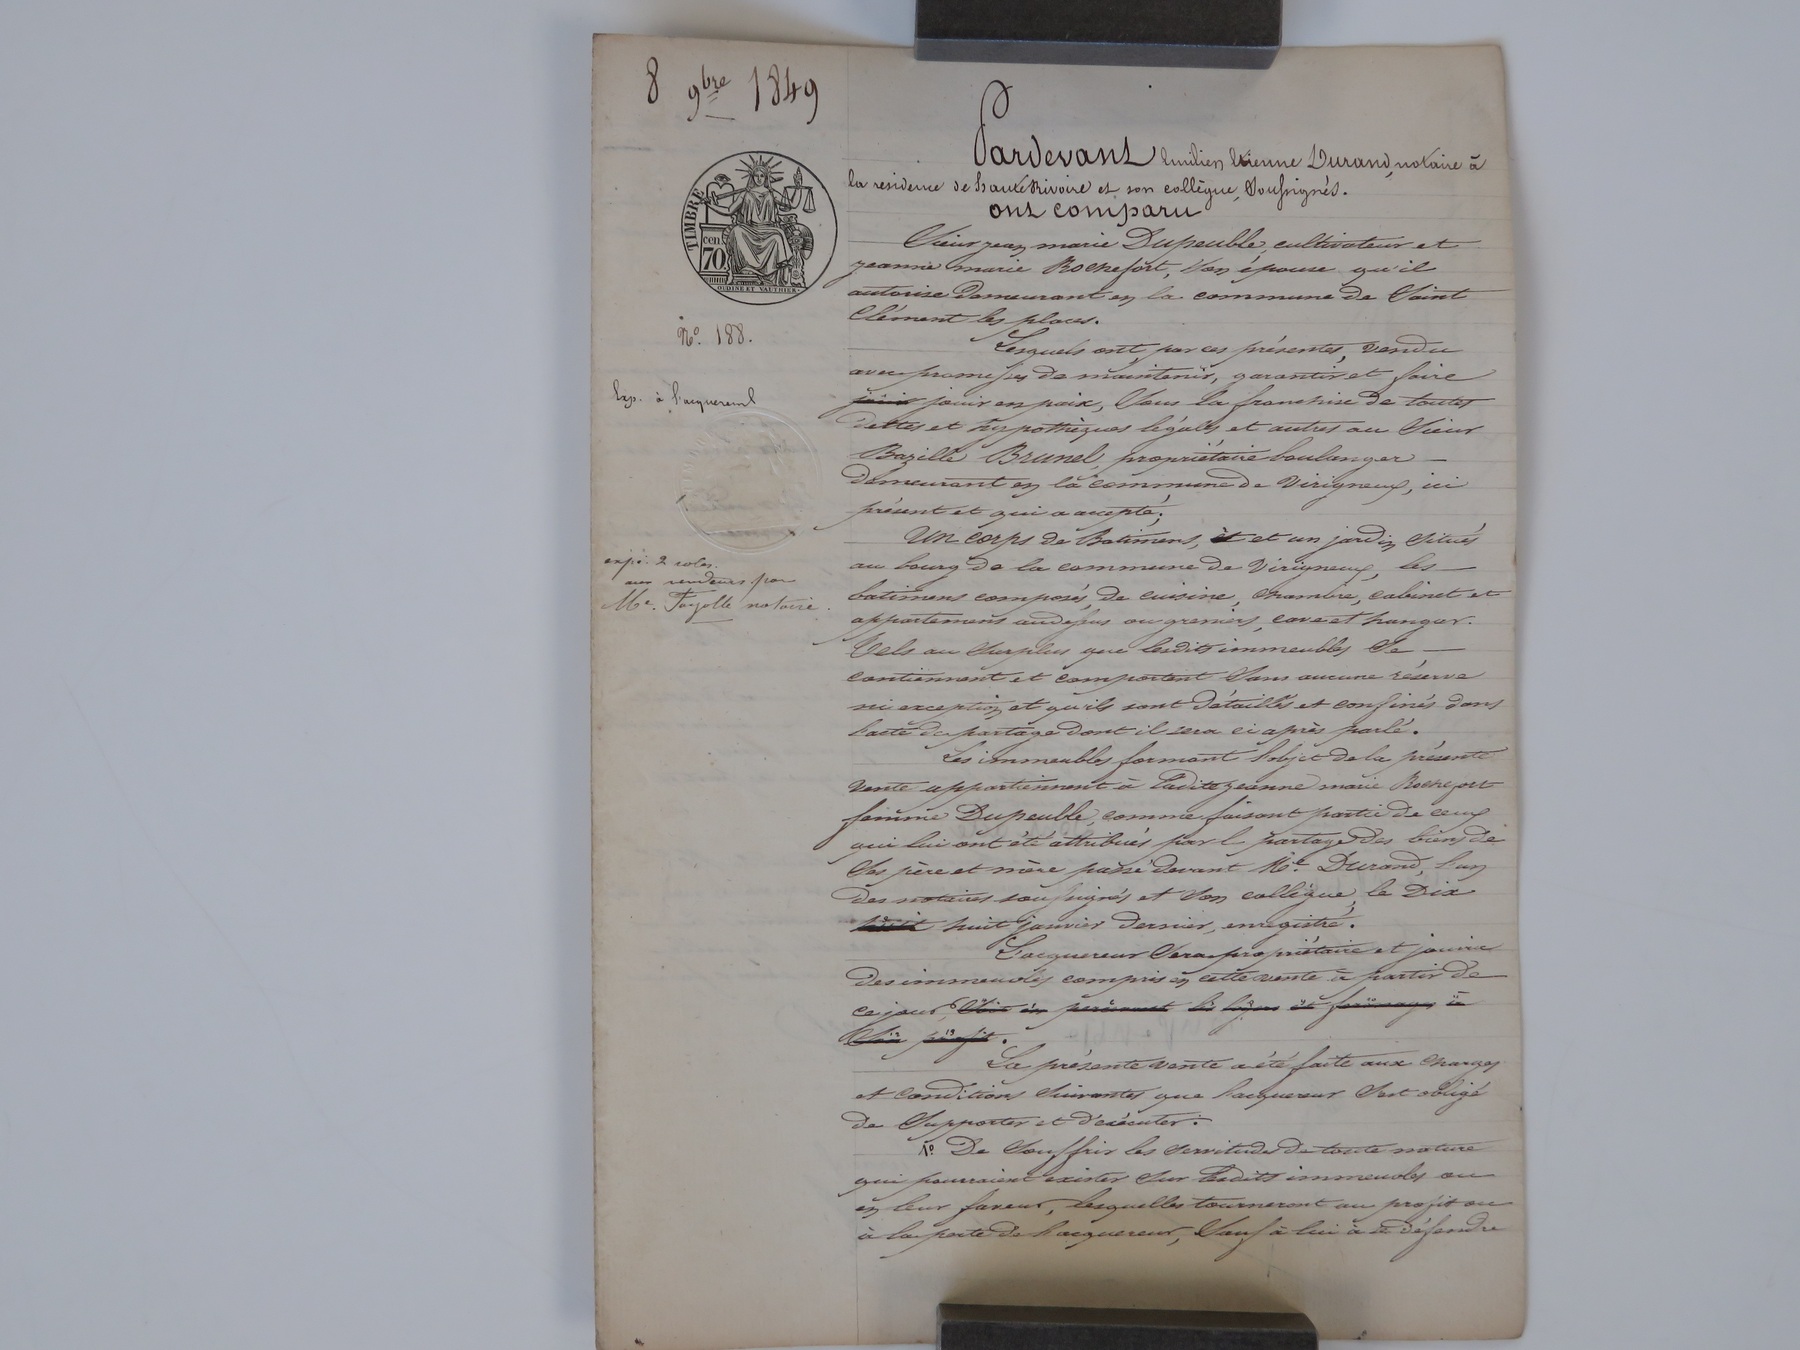 8 9bre 1849
TIMBRE
cen.
70.
OUDINÉ ET VAUTHIER.
No. 188.
Exp. à l'acquereur
expé. 2 roles.
aux vendeurs par
Me. Fayolle notaire.
Pardevant Emilien Etienne Durand, notaire à
la residence de hauteRivoire et son collègue, Soussignés.
ont comparu
Sieur jean marie Dupeuble, cultivateur et
jeanne marie Rochefort, son épouse qu'il
autorise demeurant en la commune de Saint
Clément les places.
Lesquels ont, par ces présentes, vendu
avec promesses de maintenir, garantir et faire
jouir jouir en paix, sous la franchise de toutes
dettes et hypothèques légales et autres au Sieur
Bazille Brunel, propriétaire boulanger —
demeurant en la commune de Virigneux, ici
présent et qui a accepté;
Un corps de Batimens, et et un jardin situés
au bourg de la commune de Virigneux, les —
batimens composés de cuisine, chambre, cabinet et
appartemens audessus ou greniers, cave et hangar.
Tels au surplus que lesdits immeubles se —
contiennent et comportent sans aucune réserve
ni exception et qu'ils sont détaillés et confinés dans
l'acte de partage dont il sera ci après parlé.
Les immeubles formant l'objet de la présente
vente appartiennent à ladite jeanne marie Rochefort
femme Dupeuble, comme faisant partie de ceux
qui lui ont été attribués par l partage des biens de
ses père et mère passé devant Me. Durand, l'un
des notaires soussignés et son collègue, le Dix
huit huit janvier dernier, enregistré.
L'acquereur sera propriétaire et jouira
des immeubles compris en cette vente à partir de
ce jour, soit en percevant les loyers et fermages à
son profit.
La présente vente a été faite aux charges
et conditions suivantes que l'acquereur s'est obligé
de supporter et d'exécuter.
1o. De souffrir les servitudes de toute nature
qui pourraient exister sur lesdits immeubles ou
en leur faveur, lesquelles tourneront au profit ou
à la perte de l'acquereur, sauf à lui à se défendre